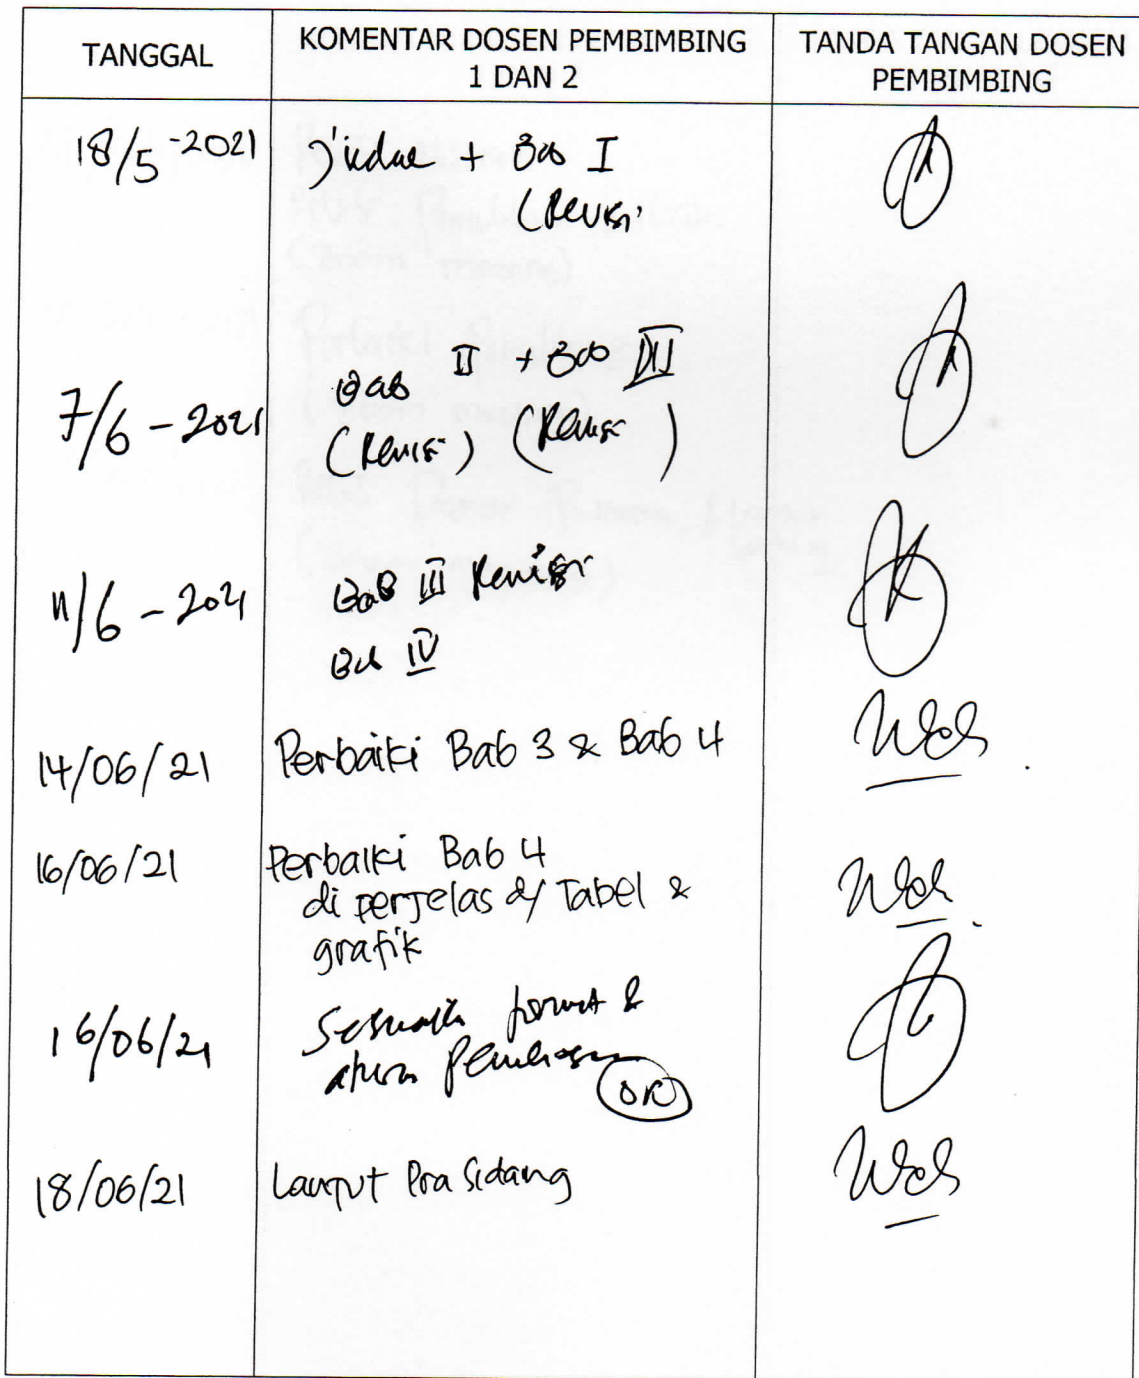 TANGGAL
KOMENTAR DOSEN PEMBIMBING
1 DAN 2
TANDA TANGAN DOSEN
PEMBIMBING
18/5-2021
+ Bab I
(Revisi
7/6-2021
Bab II + Bab III
(Revisi) (Revisi)
11/6-2021
Bab III Revisi
Bab IV
14/06/21
Perbaiki Bab 3 & Bab 4
16/06/21
Perbaiki Bab 4
di perjelas d/ Tabel &
grafik
16/06/21
format &
OK
18/06/21
Lanjut Pra Sidang